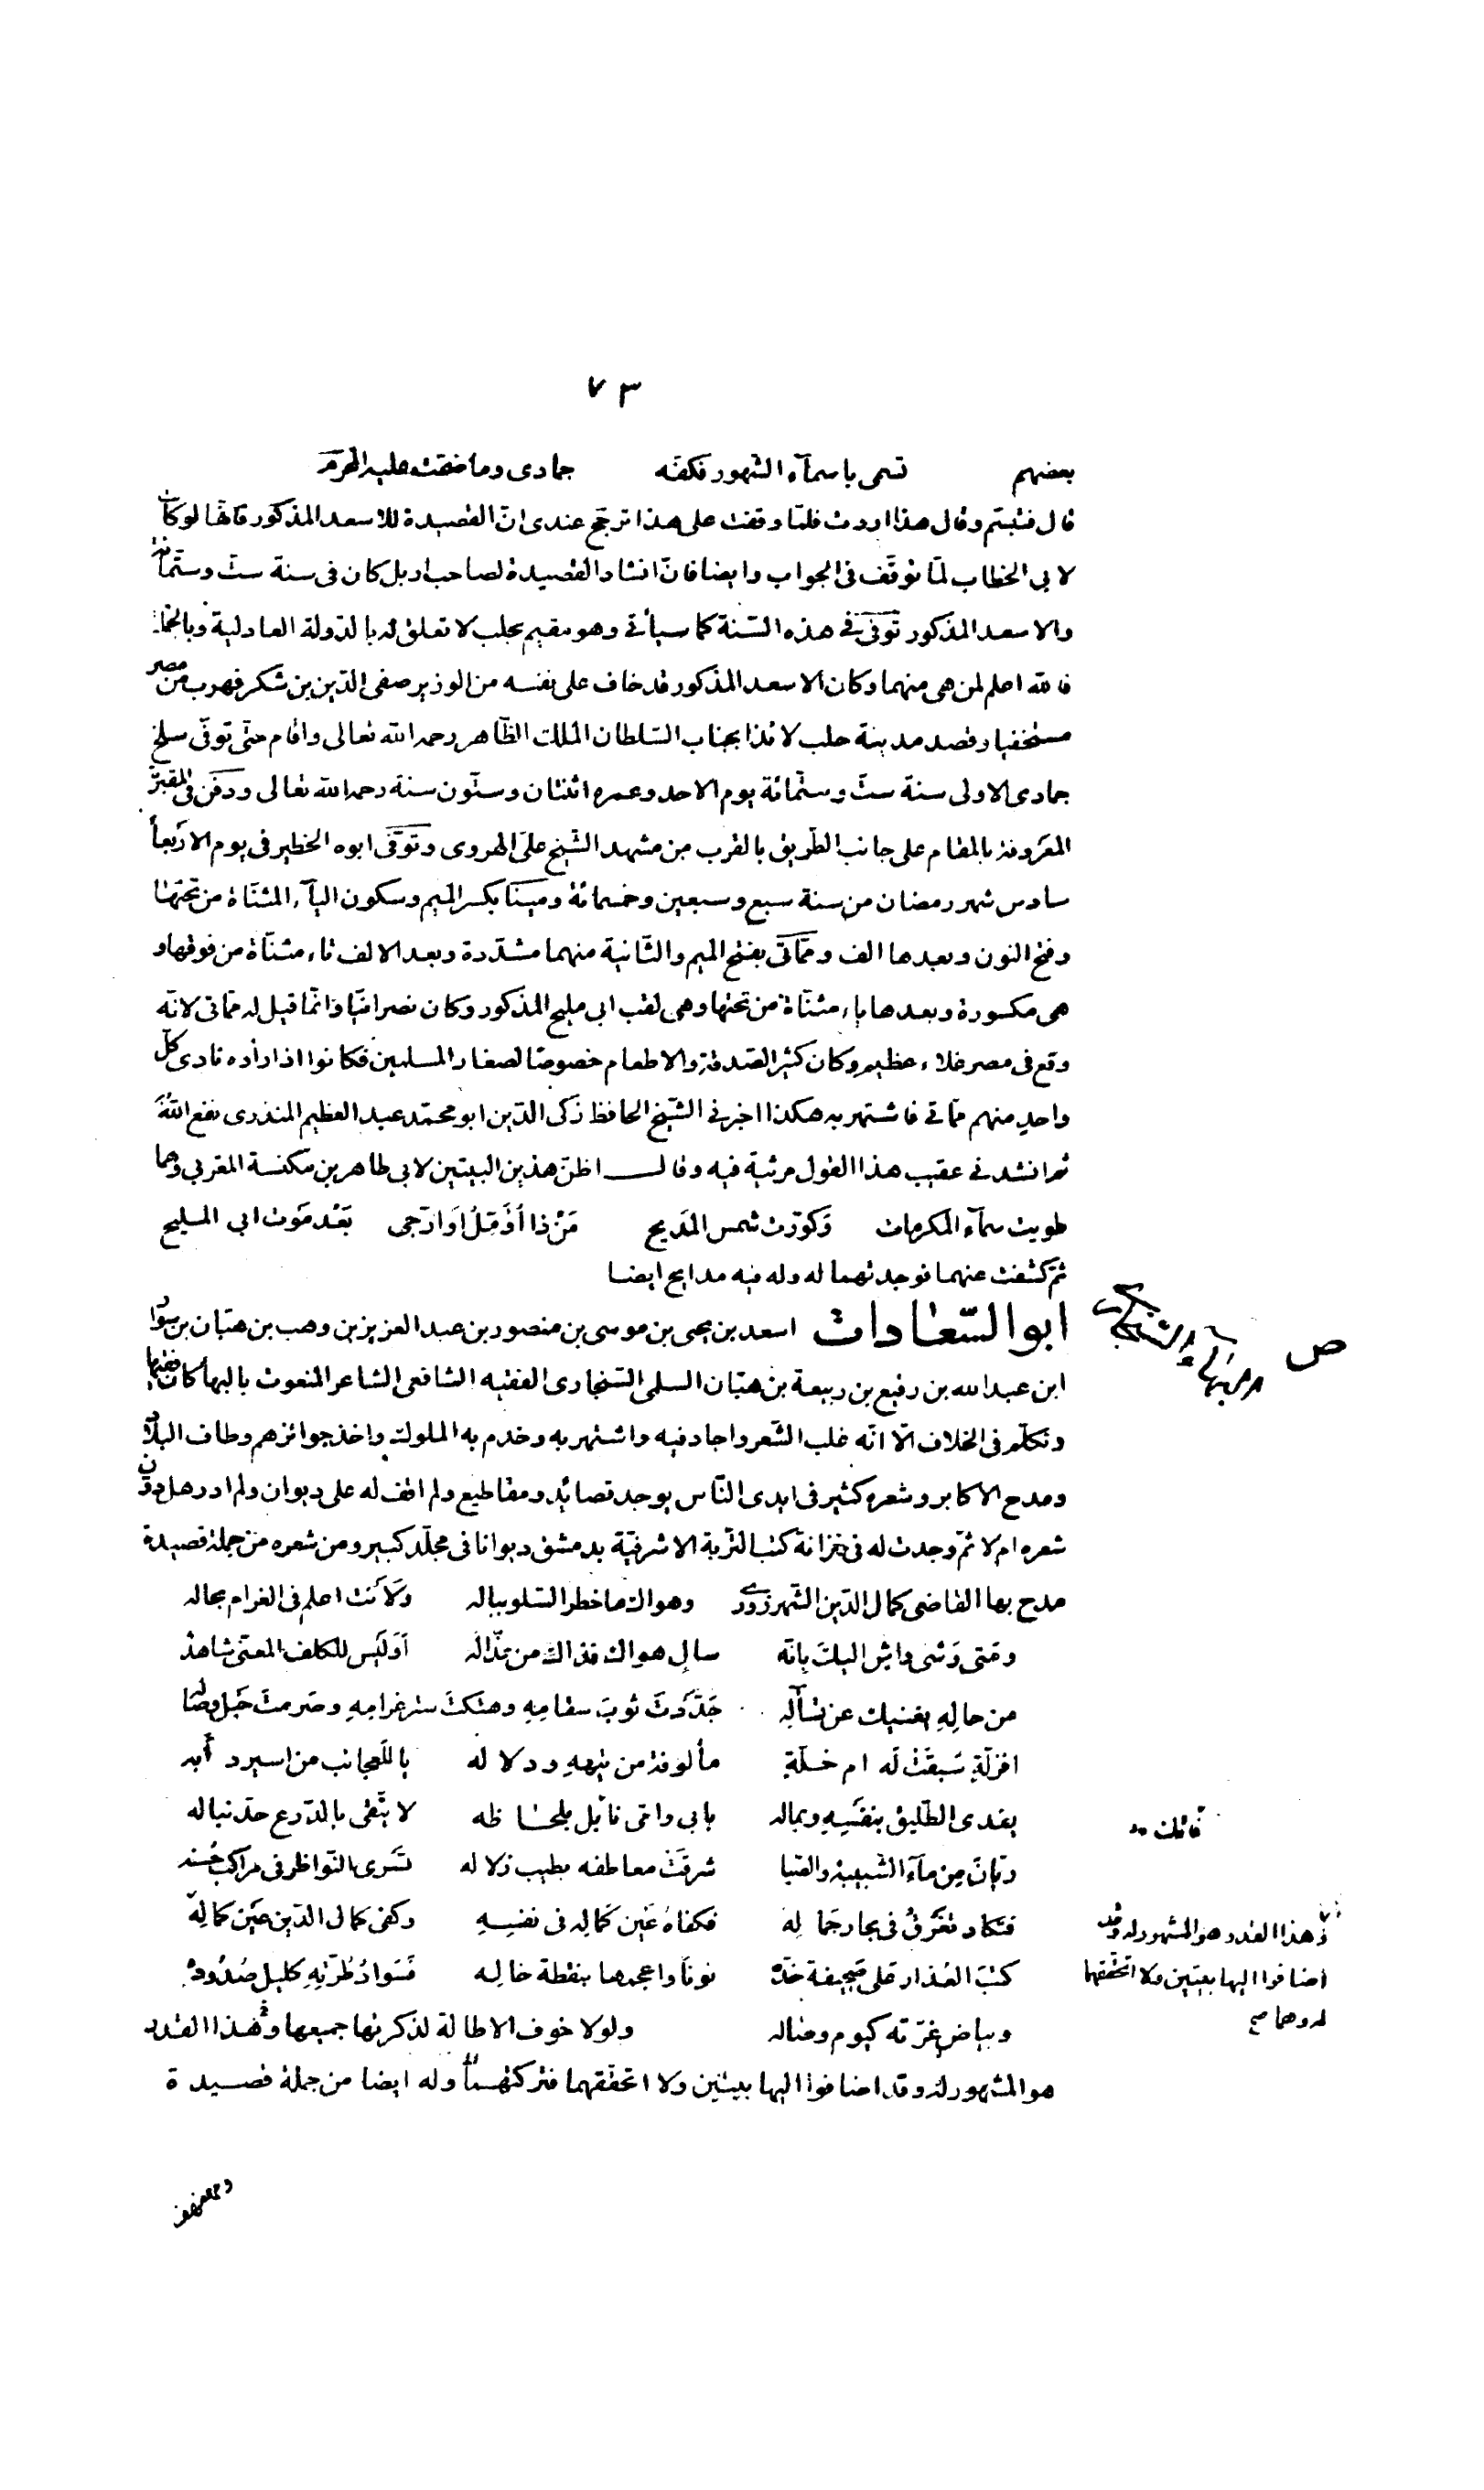 ٧٣
بعضهم تسمى باسمآء الشهور فكفه جمادى وما ضمّت عليه المحرّم
قال فتبسّم وقال هذا اردت فلمّا وقفت على هذا ترجّح عندى انّ القصيدة للاسعد المذكور فانّها لو كانت
لابى الخطاب لمّا توقّف فى الجواب وايضا فانّ انشاد القصيدة لصاحب اربل كان فى سنة ستّ وستّمائة
والاسعد المذكور توفّى فى هذه السّنة كما سيأتى وهو مقيم بحلب لا تعلق له بالدّولة العادلية وبالجملة
فالله اعلم لمن هى منهما وكان الاسعد المذكور قد خاف على نفسه من الوزير صفى الدّين بن شكر فهرب من مصر
مستخفيا وقصد مدينة حلب لائذا بجناب السّلطان الملك الظّاهر رحمه الله تعالى واقام حتّى توفّى سلخ
جمادى الاولى سنة ستّ وستّمائة يوم الاحد وعمره اثنتان وستّون سنة رحمه الله تعالى ودفن فى المقبرة
المعروفة بالمقام على جانب الطّريق بالقرب من مشهد الشّيخ علىّ الهروى وتوفّى ابوه الخطير فى يوم الاربعأ
سادس شهر رمضان من سنة سبع وسبعين وخمسمائة ومينا بكسر الميم وسكون اليآء المثنّاة من تحتها
وفتح النون وبعدها الف ومّمّاتى بفتح الميم والثّانية منهما مشدّدة وبعد الالف تاء مثنّاة من فوقها و
هى مكسورة وبعدها ياء مثنّاة من تحتها وهى لقب ابى مليح المذكور وكان نصرانيّا وانّما قيل له ممّاتى لانّه
وقع فى مصر غلاء عظيم وكان كثير الصّدقة والاطعام خصوصا لصغار المسلمين فكانوا اذا رأوه نادى كلّ
واحدٍ منهم ممّاتى فاشتهر به هكذا اخبرنى الشّيخ الحافظ زكى الدّين ابو محمّد عبد العظيم المنذرى نفع الله به
ثم انشدنى عقيب هذا القول مرثية فيه وقال اظنّ هذين البيتين لابى طاهر بن مكنسة المغربى وهما
طويت سمآء المكرمات وكوّرت شمس المديح مَنْ ذا أُؤَمِّلُ اَوَ ارتجى بَعْد مَوت ابى المليح
ثمّ كشفت عنهما فوجدتهما له وله فيه مدايح ايضا
ابو السّعادات اسعد بن يحيى بن موسى بن منصور بن عبد العزيز بن وهب بن هبّان بن سوّار
ابن عبد الله بن رفيع بن ربيعة بن هبّان السلمى السّنجارى الفقيه الشافعى الشاعر المنعوت بالبهأ كان فقيها
وتكلّم فى الخلاف الّا انّه غلب الشّعر واجاد فيه واشتهر به وخدم به الملوك واخذ جوائزهم وطاف البلاد
ومدح الاكابر وشعره كثير فى ايدى النّاس يوجد قصائد ومقاطيع ولم اقف له على ديوان ولم ادر هل دوّن
شعره ام لا ثمّ وجدت له فى خزانة كتب التّربة الاشرفيّة بدمشق ديوانا فى مجلّد كبير ومن شعره من جملة قصيدة
مدح بها القاضى كمال الدّين الشّهرزورى وهواك ما خطر السّلو بباله وَلَاَنت اعلم فى الغرام بحاله
ومَتى وَشى واشٍ اليكَ بانّه سالٍ هواك فذاك من عُذّاله اَوَلَيس للكلف المعنّى شاهد
من حالهِ يغنيك عن تسآله جَدّدتَ ثوبَ سقامهِ وهتكتَ ستر غرامهِ وصَرمتَ حَبل وصاله
افزلّةٍ سَبقَتْ لَه ام خلّةٍ مألوفة من تيههِ ودلاله ياللعجائب من اسير دأبه
يفدى الطّليق بنفسهِ وبماله بابى وامّى نائل بلحاظه لا يتّقى بالدّرع حدّ نباله
ريّانَ مِن مآء الشّبيبة والصّبا شرقَتْ معاطفه بطيب زلاله تَسرى النّواظر فى مراكب حسنه
فتكاد تغرقُ فى بحار جماله فكفاهُ عَين كمالِه فى نفسِهِ وكفى كمال الدّين عين كمالِه
كتبَ العذار على صحيفة خدّه نونًا واعجمها بنقطة خاله فسَوادُ طُرّتِه كليل صُدُوده
وبياض غرّته كيوم وصاله ولولا خوف الاطالة لذكرتها جميعها وهذا القدر
هو المشهور له وقد اضافوا اليها بيتين ولا اتحقّقهما فتركتهما وله ايضا من جملة قصيدة
ص
فاتك
وهذا القدر هو المشهور له وقد
اضافوا اليها بيتين ولا اتحقّقهما
له وهما صح